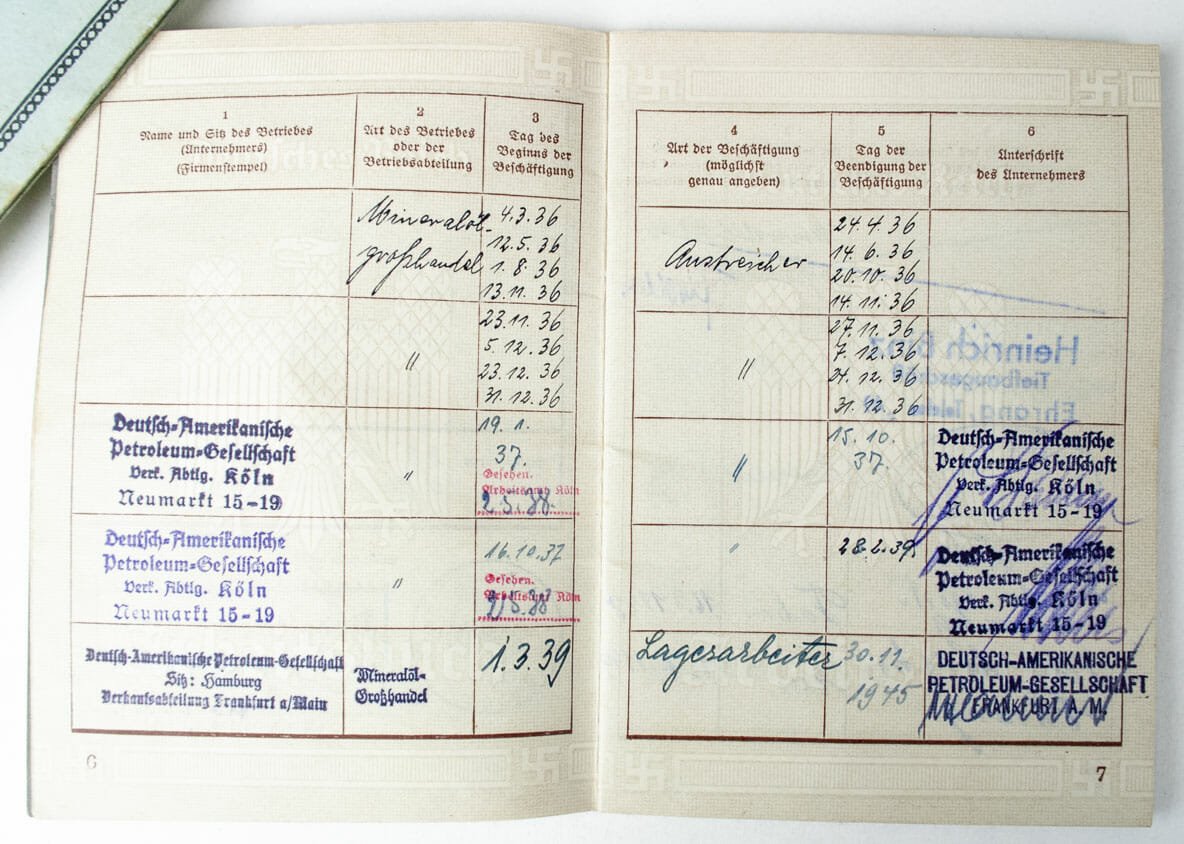 1
Name und Sitz des Betriebes
(Unternehmers)
(Firmenstempel)
2
Art des Betriebes
oder der
Betriebsabteilung
3
Tag des
Beginns der
Beschäftigung
Mineralöl-
großhandel
4.3.36
12.5.36
1.8.36
13.11.36
〃
23.11.36
5.12.36
23.12.36
31.12.36
Deutsch-Amerikanische
Petroleum-Gesellschaft
Verk. Abtlg. Köln
Neumarkt 15-19
〃
19.1.
37.
Gesehen.
Arbeitsamt Köln
Deutsch-Amerikanische
Petroleum-Gesellschaft
Verk. Abtlg. Köln
Neumarkt 15-19
〃
16.10.37
Gesehen.
Arbeitsamt Köln
Deutsch-Amerikanische Petroleum-Gesellschaft
Sitz: Hamburg
Verkaufsabteilung Frankfurt a/Main
Mineralöl-
Großhandel
1.3.39
6
4
Art der Beschäftigung
(möglichst
genau angeben)
5
Tag der
Beendigung der
Beschäftigung
6
Unterschrift
des Unternehmers
Anstreicher
24.4.36
14.6.36
20.10.36
14.11.36
〃
27.11.36
7.12.36
24.12.36
31.12.36
〃
15.10.
37.
Deutsch-Amerikanische
Petroleum-Gesellschaft
Verk. Abtlg. Köln
Neumarkt 15-19
〃
28.2.39.
Deutsch-Amerikanische
Petroleum-Gesellschaft
Verk. Abtlg. Köln
Neumarkt 15-19
Lagerarbeiter
30.11.
1945
DEUTSCH-AMERIKANISCHE
PETROLEUM-GESELLSCHAFT
FRANKFURT A. M.
7